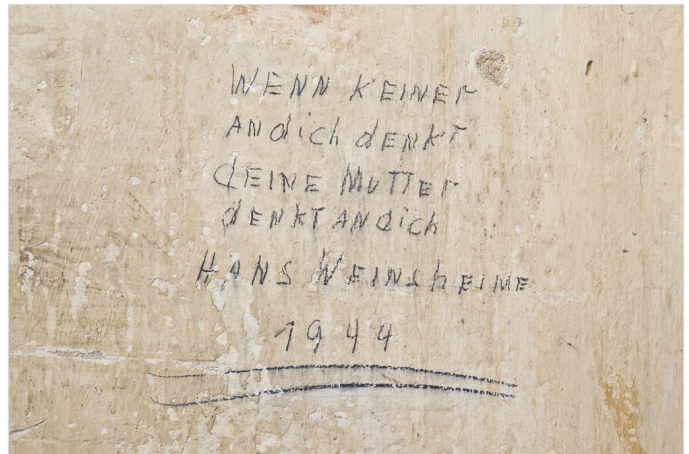 WENN KEINER
ANdich dENKT
dEINE MUTTER
dENKT ANdich
HANS WEINSHEIME
1944